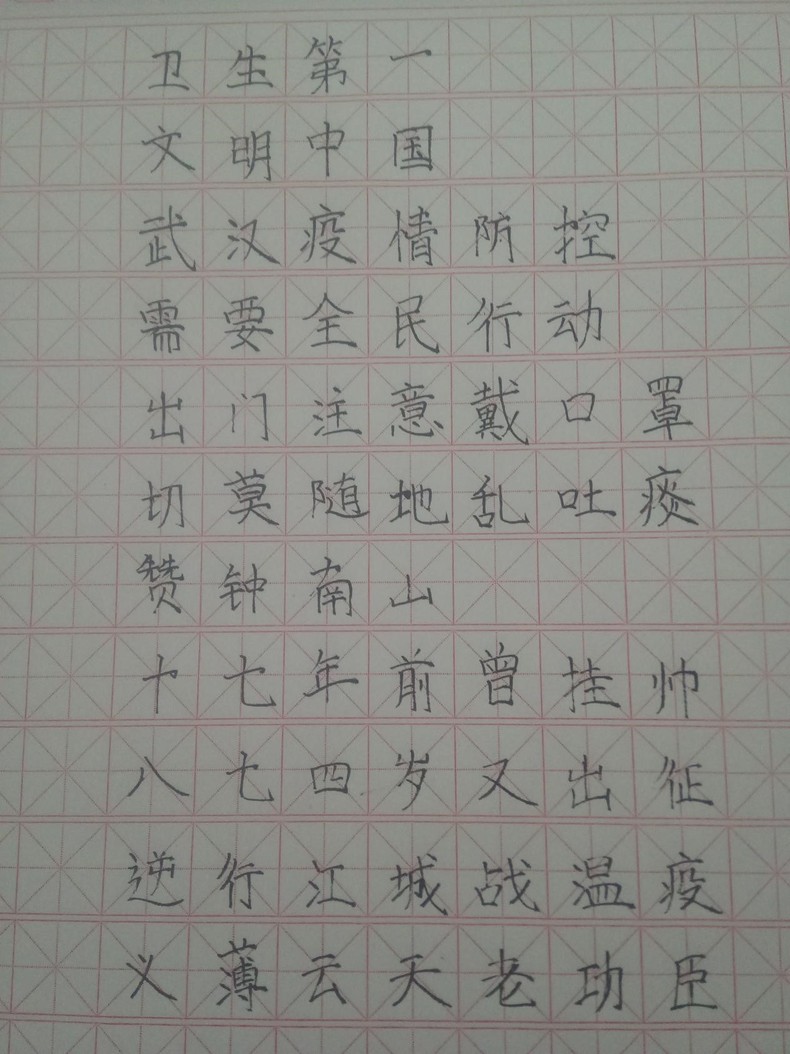 卫生第一
文明中国
武汉疫情防控
需要全民行动
出门注意戴口罩
切莫随地乱吐痰
赞钟南山
十七年前曾挂帅
八七四岁又出征
逆行江城战温疫
义薄云天老功臣